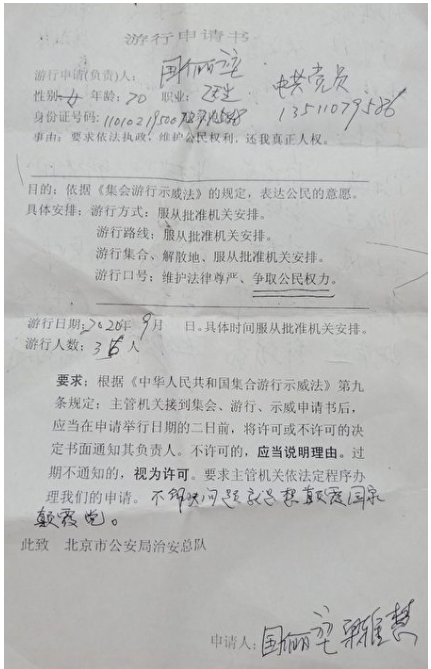 游行申请书
游行申请(负责)人: 国俪 中共党员
性别: 女 年龄: 70 职业: 医生 13511079586
身份证号码: 110102195007
事由: 要求依法执政, 维护公民权利, 还我真正人权。
目的: 依据《集会游行示威法》的规定, 表达公民的意愿。
具体安排: 游行方式: 服从批准机关安排。
游行路线: 服从批准机关安排。
游行集合、解散地、服从批准机关安排。
游行口号: 维护法律尊严、争取公民权力。
游行日期: 2020年 9月 日。具体时间服从批准机关安排。
游行人数: 3 人
要求: 根据《中华人民共和国集会游行示威法》第九
条规定; 主管机关接到集会、游行、示威申请书后,
应当在申请举行日期的二日前, 将许可或不许可的决
定书面通知其负责人。不许可的, 应当说明理由。过
期不通知的, 视为许可。要求主管机关依法定程序办
理我们的申请。不解决问题就是想颠覆国家
颠覆党。
此致 北京市公安局治安总队
申请人: 国俪 梁雅慧